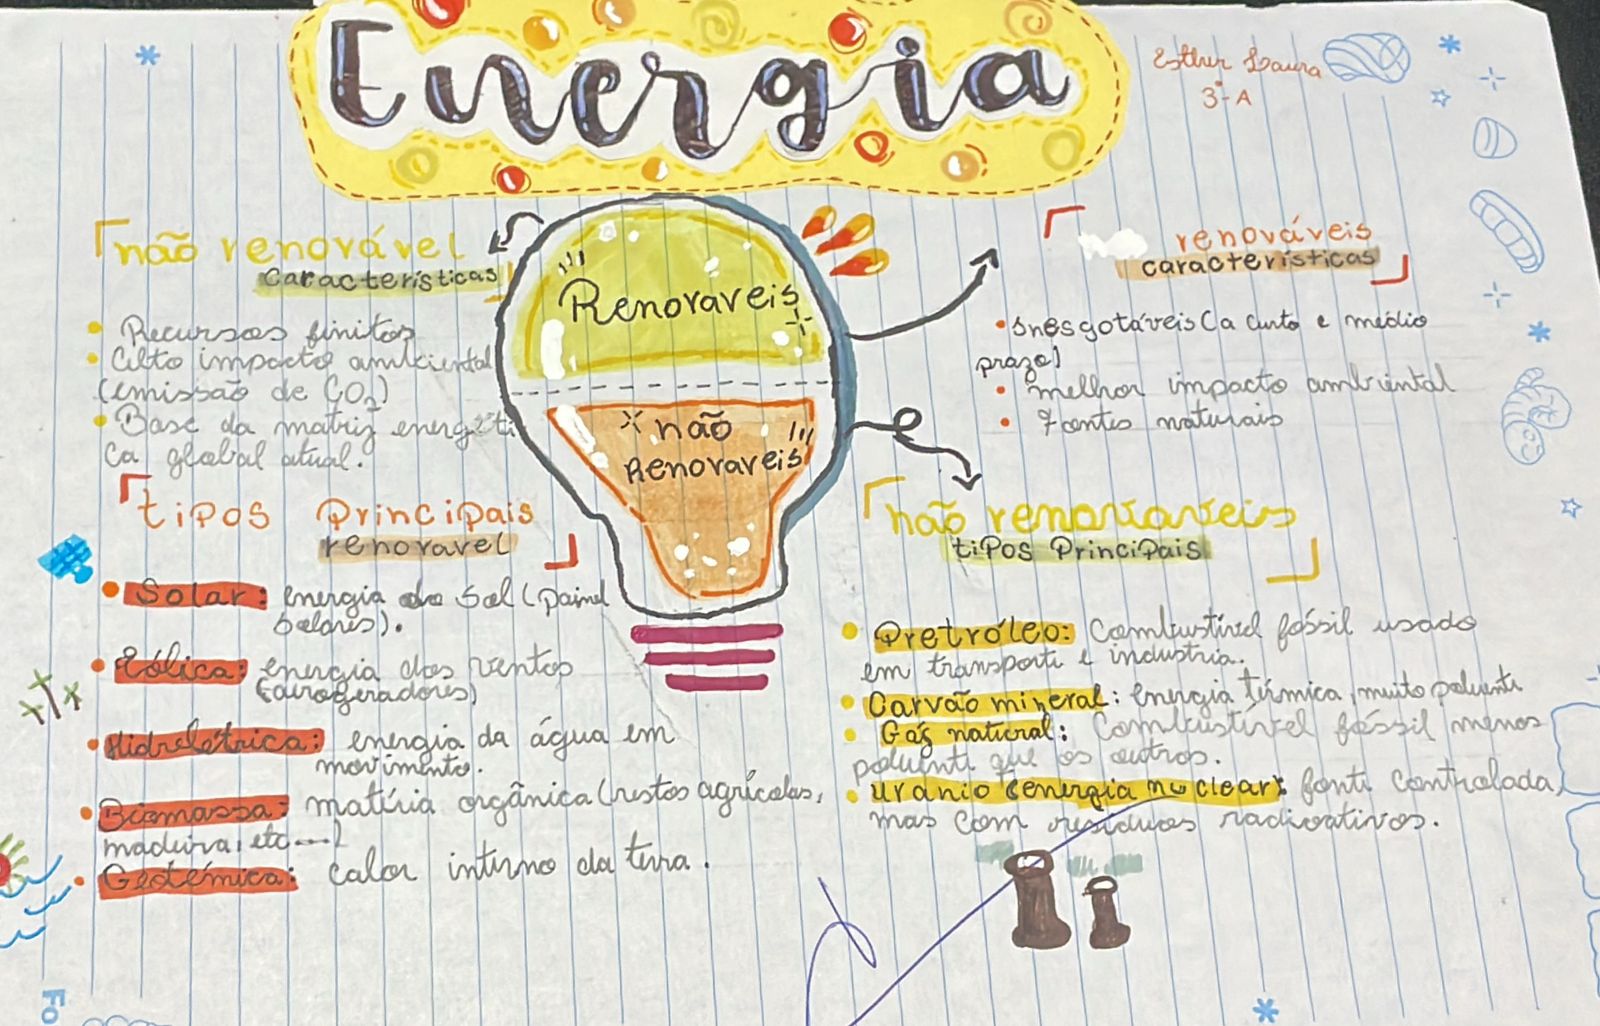 Energia
Esther Laura
3°-A
não renovável
características
• Recursos finitos
• Alto impacto ambiental
(emissão de CO₂)
• Base da matriz energéti
ca global atual.
Renoraveis
não
Renoraveis
renováveis
características
• Inesgotáveis (a curto e médio
prazo)
• melhor impacto ambiental
• Fontes naturais
tipos principais
renoravel
• Solar: energia do Sol (painel
solares).
• Eólica: energia dos ventos
(aerogeradores)
• Hidrelétrica: energia da água em
movimento.
• Biomassa: matéria orgânica (restos agrícolas,
madeira, etc...)
• Geotémica: calor interno da terra.
não renováveis
tipos principais
• Pretróleo: Combustível fóssil usado
em transporte e industria.
• Carvão mineral: energia térmica, muito poluente
• Gás natural: Combustível fóssil menos
poluente que os outros.
• urânio (energia nuclear): fonte controlada,
mas com resíduos radioativos.
Fo